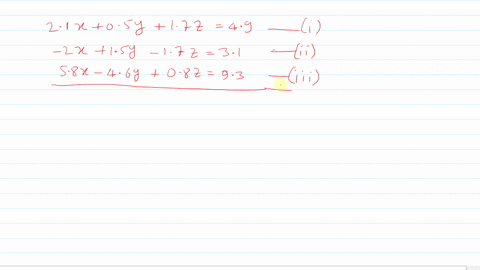 2.1x + 0.5y + 1.7z = 4.9 —(i)
-2x + 1.5y - 1.7z = 3.1 —(ii)
5.8x - 4.6y + 0.8z = 9.3 —(iii)